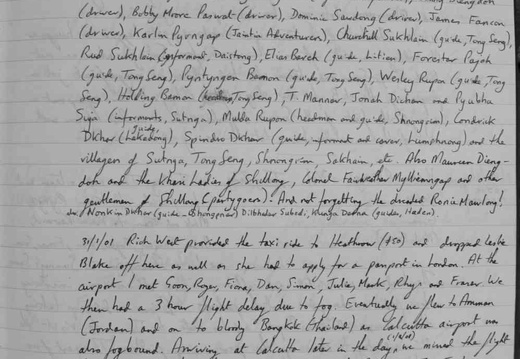 (driver), Bobby Moore Paswat (driver), Dominic Sawdong (driver), James Fancon
(driver), Karlin Pyrngap (Jaintia Adventurers), Churchill Sukhlain (guide, Tong Seng),
Rud Sukhlain (informant, Daistong), Elias Bareh (guide, Litien), Forester Pajoh
(guide, Tong Seng), Pyntyngen Bamon (guide, Tong Seng), Wesley Rupon (guide, Tong
Seng), Holding Bamon (headman, Tong Seng), T. Mannar, Jonah Dichan and Pyubha
Suja (informants, Sutnga), Mulda Rupon (headman and guide, Shnongrim), Kendrick
Dkhar (guide, Lakadong), Spindro Dkhar (guide, informant and caver, Lumshnong) and the
villagers of Sutnga, Tong Seng, Shnongrim, Sakhain, etc. Also Maureen Dieng-
doh and the Khasi Ladies of Shillong, Colonel Fairweather Mylliemngap and other
gentlemen of Shillong (partygoers). And not forgetting the dreaded Ronie Mawlong!
Nonkin Dkhar (guide - Chiongpnar) Dilbhadur Subedi, Kunga Dorna (guides,
31/1/01 Rich West provided the taxi ride to Heathrow (£50) and dropped Leslie
Blake off here as well as she had to apply for a passport in London. At the
airport I met Goon, Roger, Fiona, Dan, Simon, Julie, Mark, Rhys and Fraser. We
then had a 3 hour flight delay, due to fog. Eventually we flew to Amman
(Jordan) and on to bloody Bangkok (Thailand) as Calcutta airport was
also fogbound. Arriving at Calcutta later in the day, we missed the flight